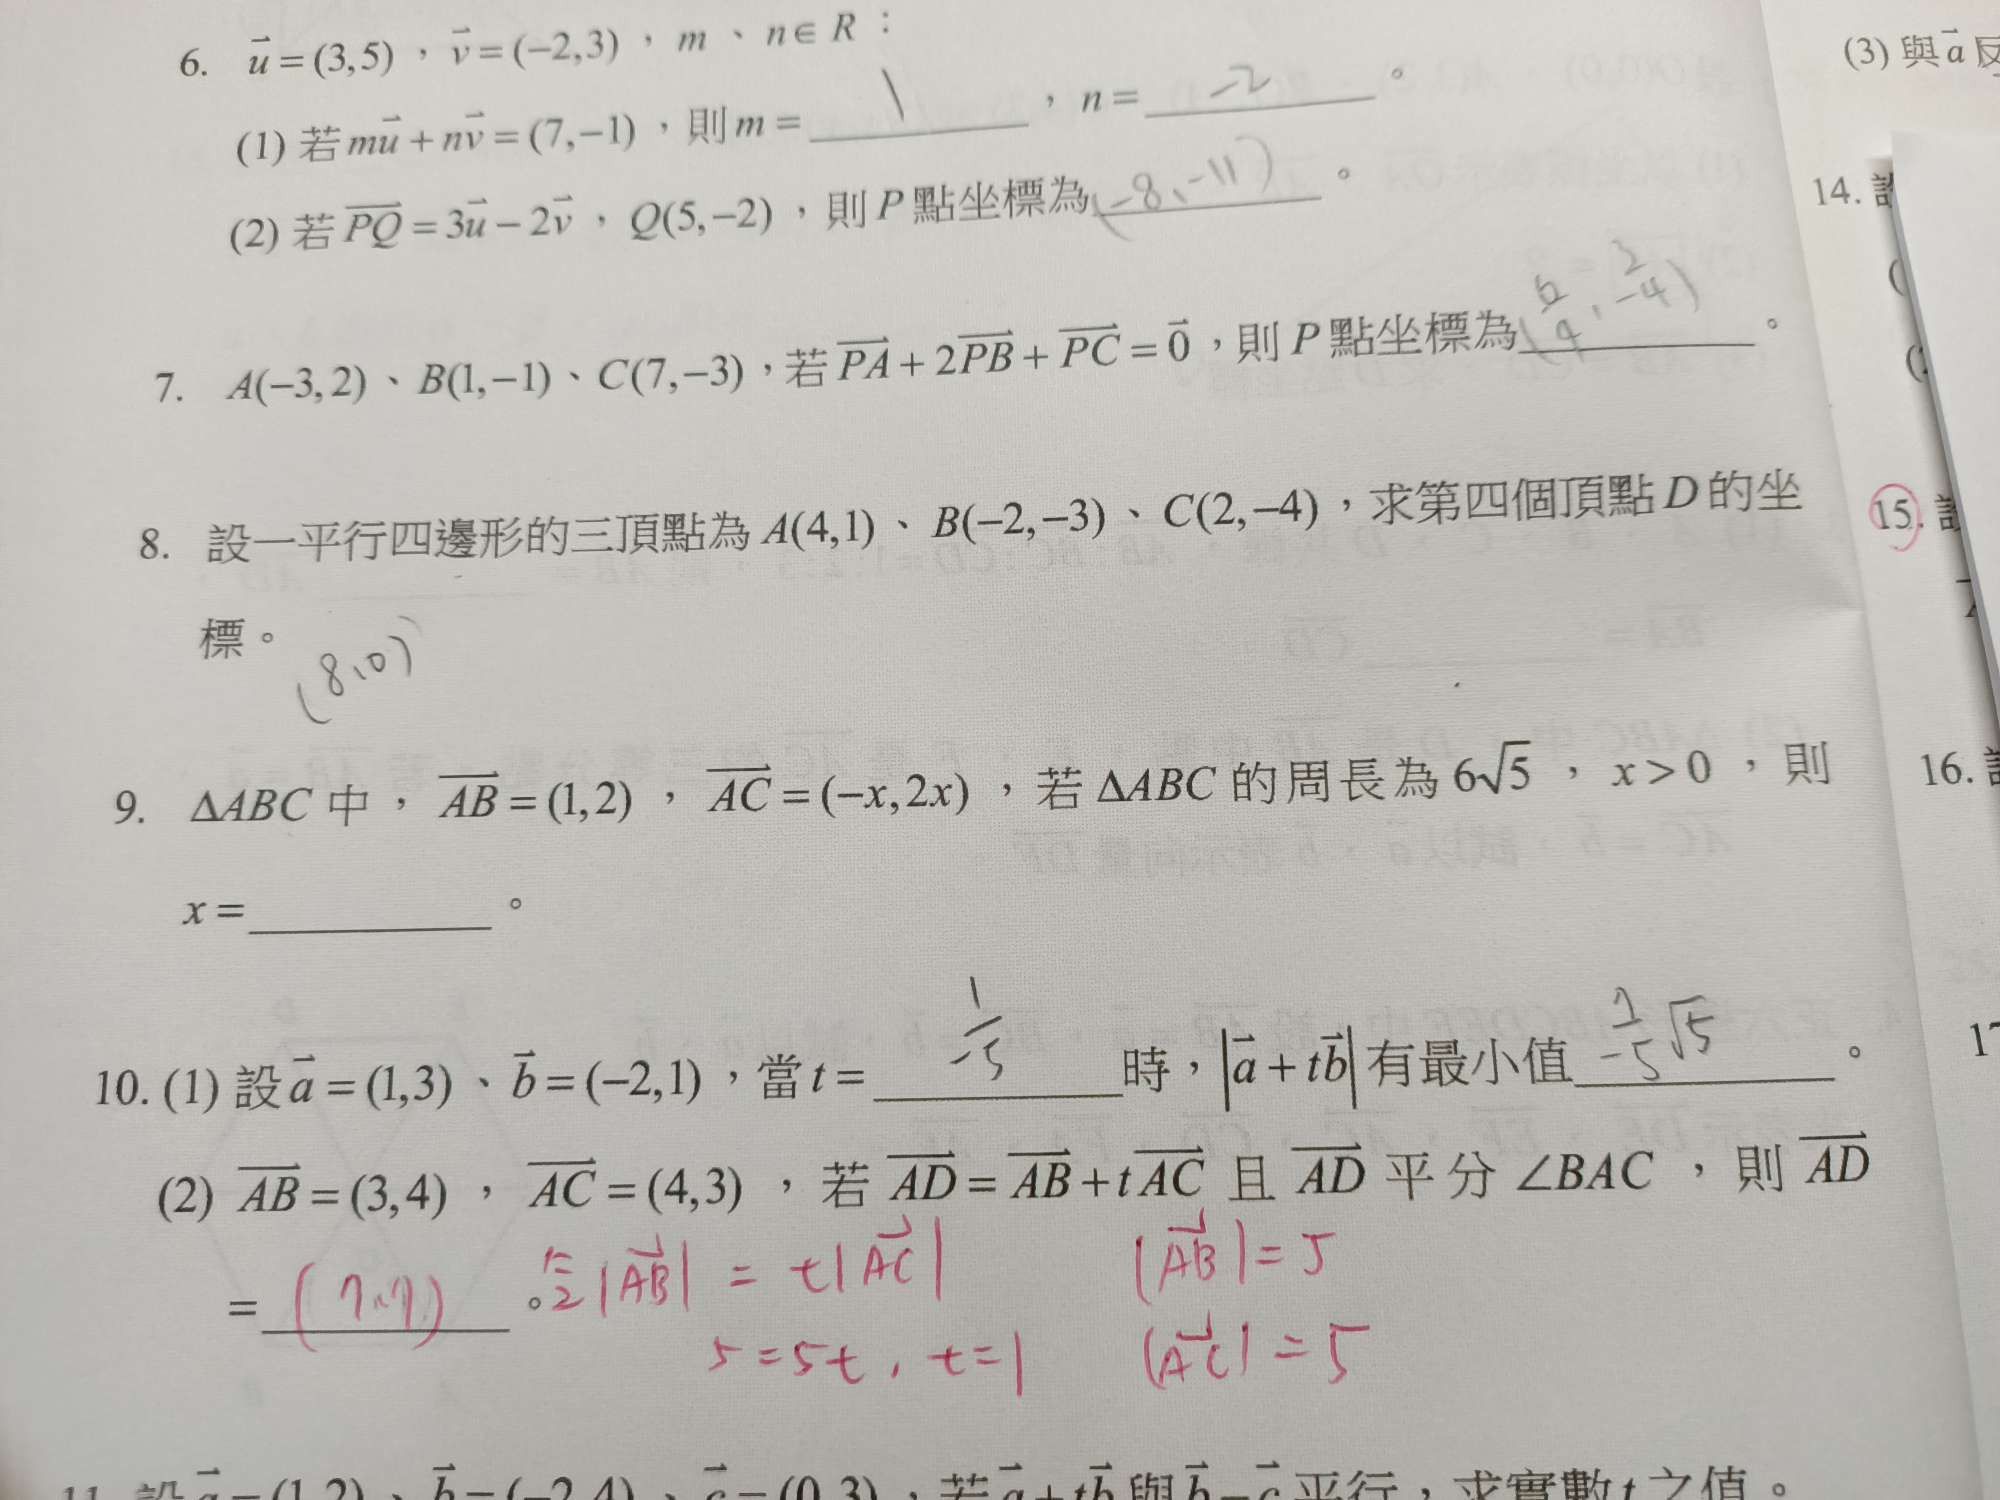 6. u⃗ = (3,5) , v⃗ = (−2,3) , m 、 n ∈ R :
(1) 若 mu⃗ + nv⃗ = (7,−1) ,則 m = 1 , n = −2 。
(2) 若 PQ⃗ = 3u⃗ − 2v⃗ , Q(5,−2) ,則 P 點坐標為 (−8、−11) 。
7. A(−3,2) 、 B(1,−1) 、 C(7,−3) ,若 PA⃗ + 2PB⃗ + PC⃗ = 0⃗ ,則 P 點坐標為 。
8. 設一平行四邊形的三頂點為 A(4,1) 、 B(−2,−3) 、 C(2,−4) ,求第四個頂點 D 的坐
標。 (8、0)
9. ΔABC 中 , AB⃗ = (1,2) , AC⃗ = (−x,2x) ,若 ΔABC 的周長為 6√5 , x > 0 ,則
x = 。
10. (1) 設 a⃗ = (1,3) 、 b⃗ = (−2,1) ,當 t = 1/−5 時, |a⃗ + tb⃗| 有最小值 7/−5 √5 。
(2) AB⃗ = (3,4) , AC⃗ = (4,3) ,若 AD⃗ = AB⃗ + t AC⃗ 且 AD⃗ 平分 ∠BAC ,則 AD⃗
= (7、7) 。 |AB⃗| = t|AC⃗| |AB⃗| = 5
5 = 5t , t = 1 |AC⃗| = 5
11. 設 a⃗ = (1,2) 、 b⃗ = (−2,4) 、 c⃗ = (0,3) ,若 a⃗ + tb⃗ 與 b⃗ − c⃗ 平行,求實數 t 之值。
(3) 與 a⃗ 反
14.
15.
16.
17